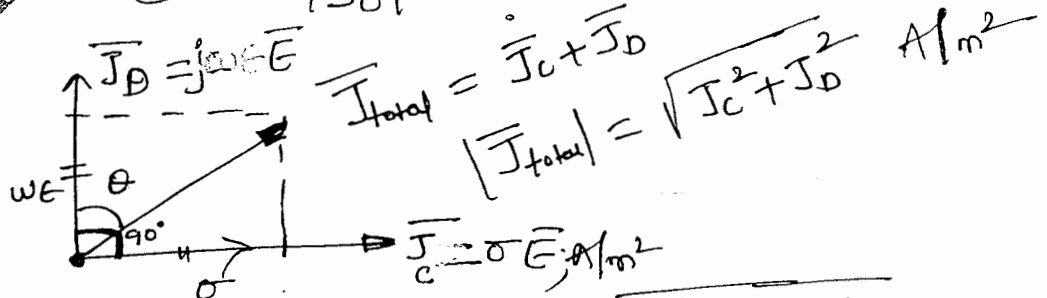 J̅_D = jωϵE̅
J̅_total = J̅_C + J̅_D
|J̅_total| = √(J_C² + J_D²) A/m²
ωϵ
θ
90°
σ
J̅_C = σE̅; A/m²